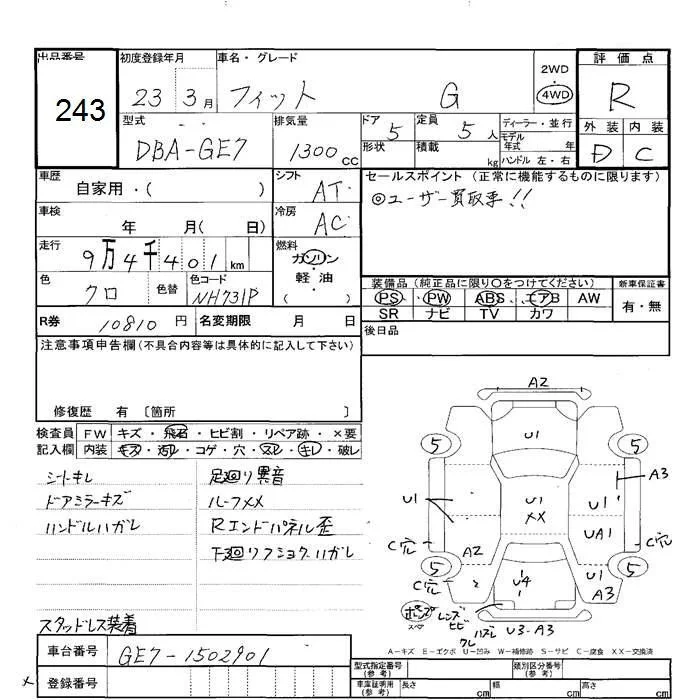 出品番号
243
初度登録年月
23 3月
車名・グレード
フィット G
2WD
4WD
評価点
R
型式
DBA-GE7
排気量
1300cc
ドア 5
形状
定員 5人
積載 kg
ディーラー・並行
モデル年式 年
ハンドル 左・右
外装 内装
D C
車歴
自家用・( )
シフト AT
セールスポイント (正常に機能するものに限ります)
◎ユーザー買取車!!
車検
年 月( 日)
冷房 AC
走行
9万4千401km
燃料
ガソリン
・
軽油
( )
色
クロ
色替
色コード
NH731P
装備品(純正品に限り〇をつけてください)
PS・PW・ABS・エアB AW
SR ナビ TV カワ
新車保証書
有・無
R券 10810円
名変期限 月 日
後日品
注意事項申告欄(不具合内容等は具体的に記入して下さい)
修復歴 有〔箇所 〕
検査員記入欄
FW キズ・飛石・ヒビ割・リペア跡・×要
内装 キズ・汚れ・コゲ・穴・スレ・キレ・破レ
シートキレ
ドアミラーキズ
ハンドルハガレ
足廻り異音
ルーフメメ
Rエンドパネル歪
下廻りフショクハガレ
スタッドレス装着
A2
U1
5 5
A3
U1
U1
XX
U1
UA1
C穴
C穴
A2
5 5
C穴
U4
U1
A3
ポンプ
スペア
レンズ
ヒビ
ワレ
ハズレ
U3-A3
A-キズ E-エクボ U-凹み W-補修跡 S-サビ C-腐食 XX-交換済
車台番号
GE7-1502901
×登録番号
型式指定番号
(参考)
類別区分番号
(参考)
車庫証明用
(参考)
長さ cm
幅 cm
高さ cm